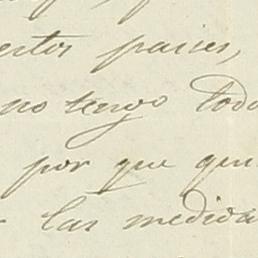 estos paises,
no tengo todo
por que qui
las medida